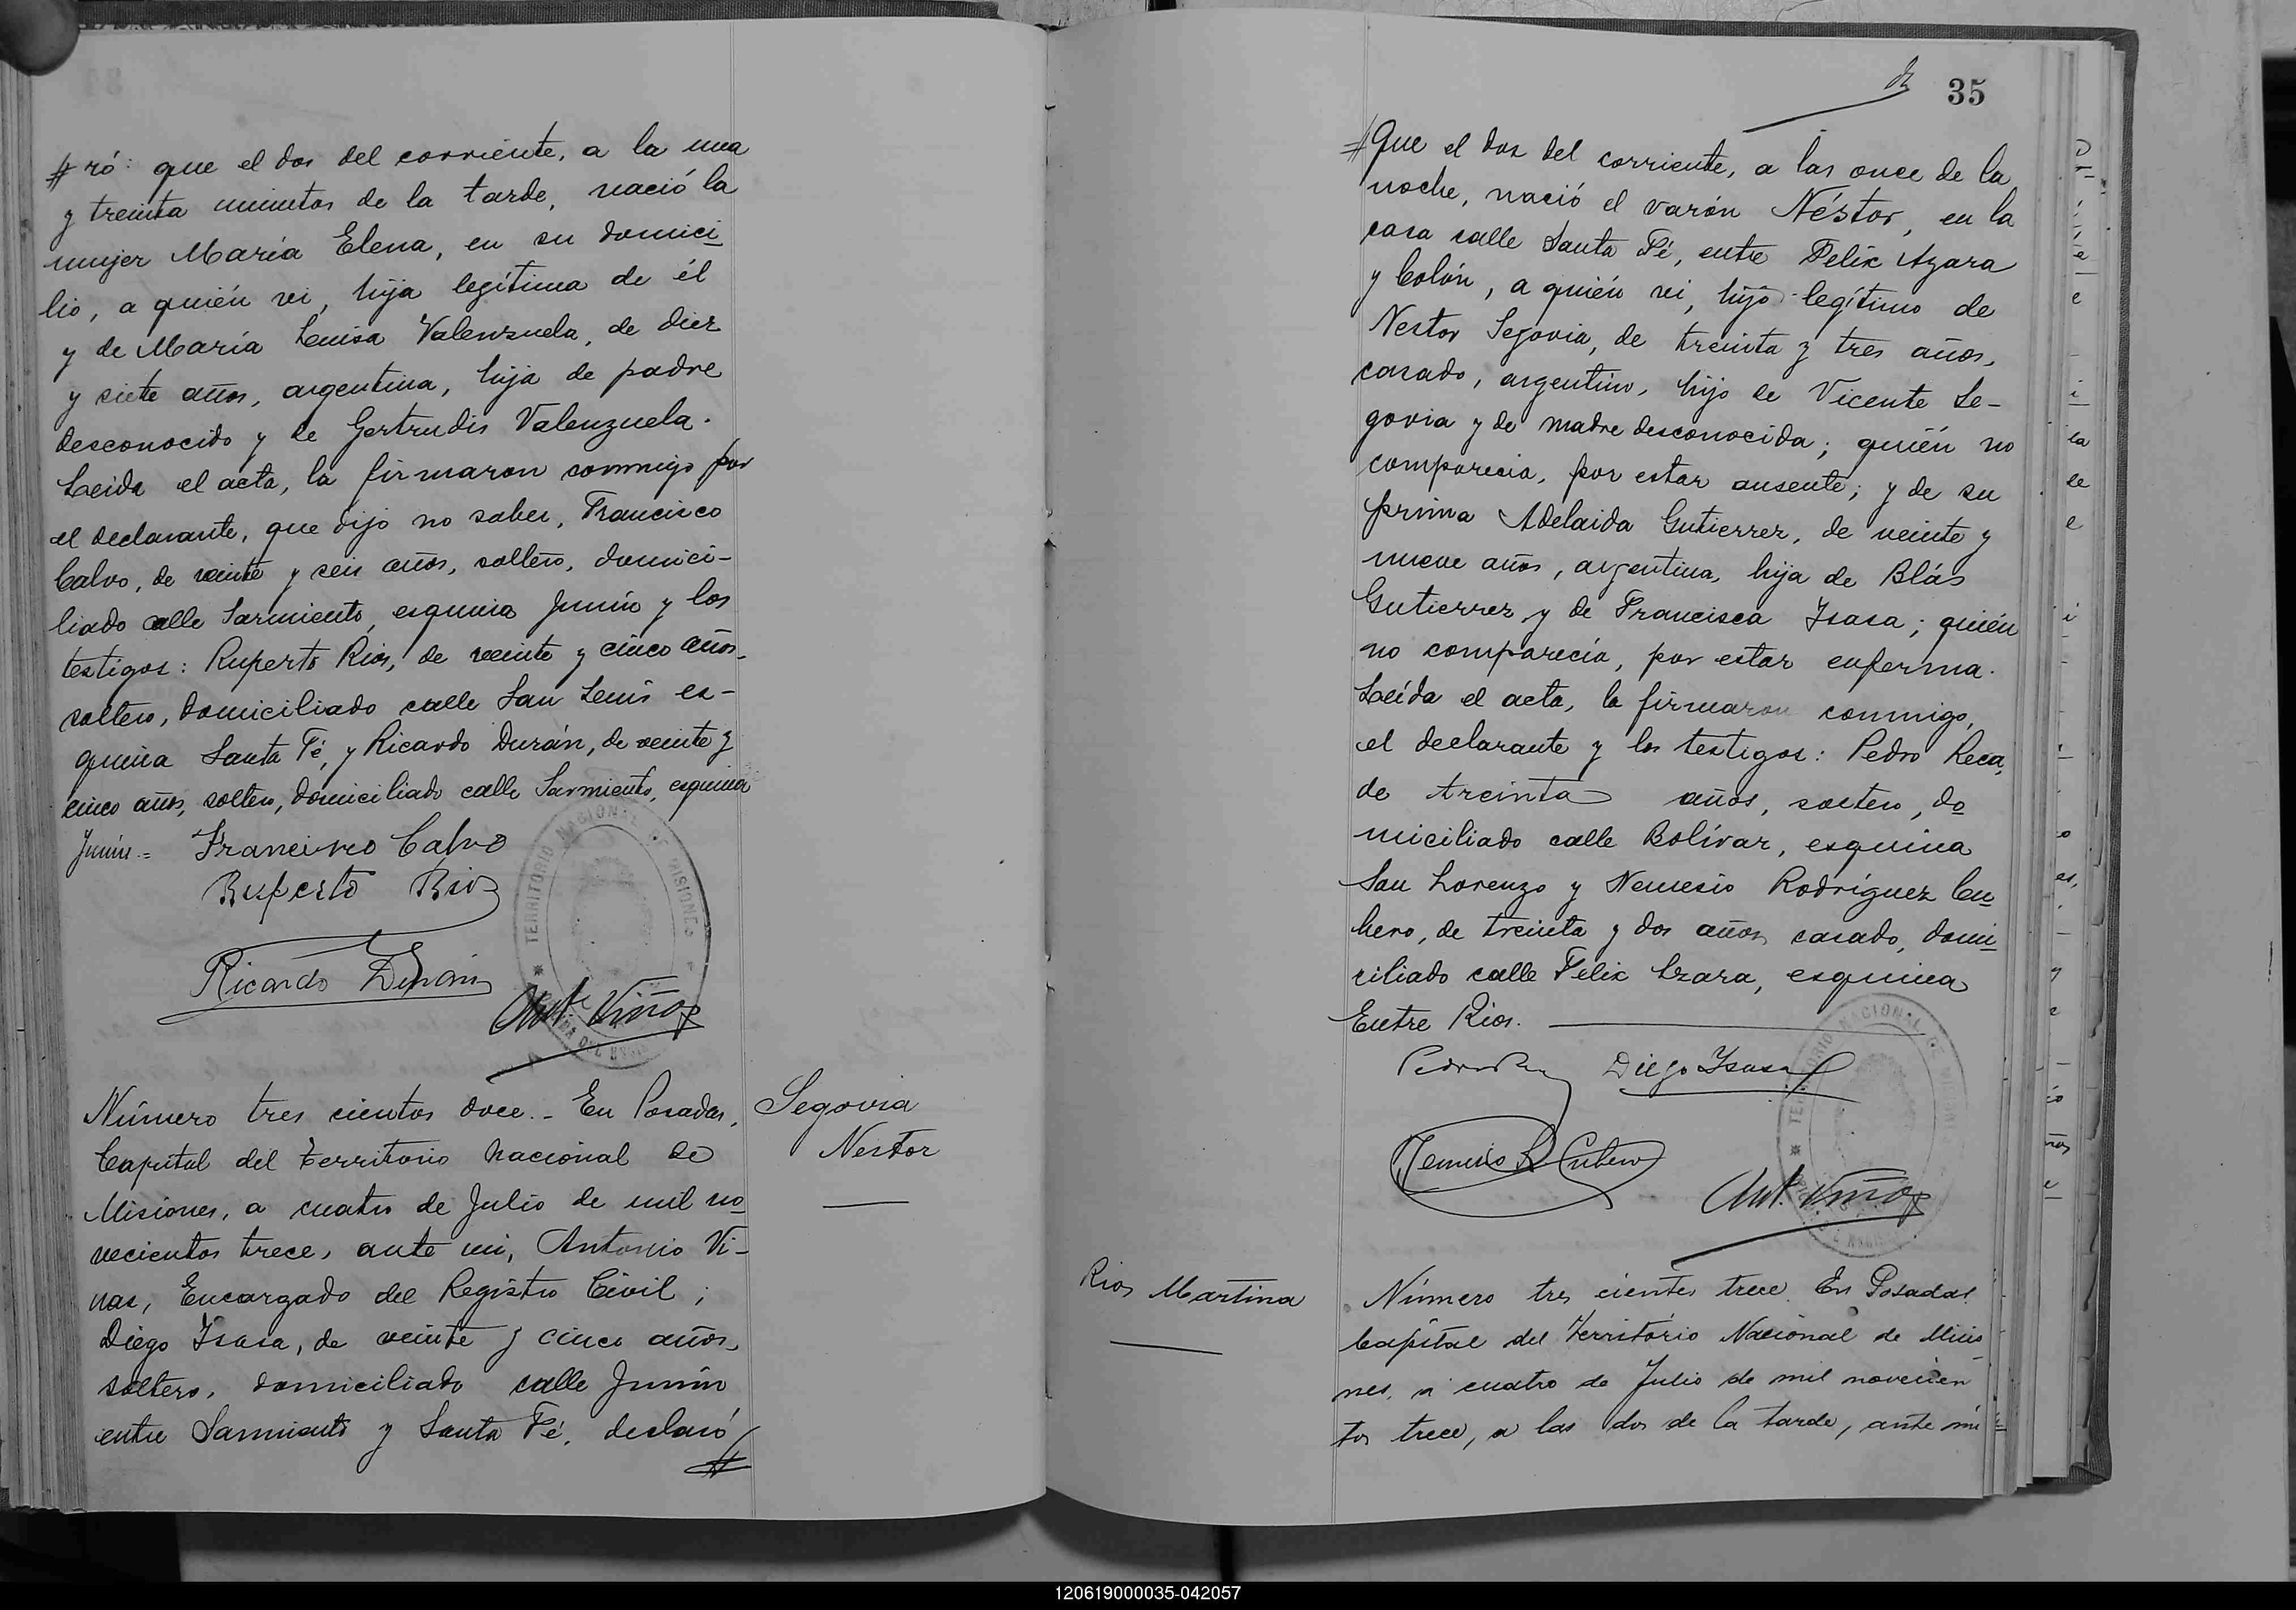 # ró: que el dos del corriente, a la una
y treinta minutos de la tarde, nació la
mujer María Elena, en su domici
lio, a quién vi, hija legítima de él
y de María Luisa Valenzuela, de diez
y siete años, argentina, hija de padre
desconocido y de Gertrudis Valenzuela.
Leída el acta, la firmaron conmigo por
el declarante, que dijo no saber, Francisco
Calvo, de veinte y seis años, soltero, domici-
liado calle Sarmiento, esquina Junín y los
testigos: Ruperto Rios, de veinte y cinco años,
soltero, domiciliado calle San Luis es-
quina Santa Fé, y Ricardo Durán, de veinte y
cinco años, soltero, domiciliado calle Sarmiento, esquina
Junín.=
Francisco Calvo
Ruperto Rios
Ricardo Durán
Ant. Viñas
TERRITORIO NACIONAL DE MISIONES
Número tres cientos doce._ En Posadas,
Capital del territorio nacional de
Misiones, a cuatro de Julio de mil no
vecientos trece, ante mi, Antonio Vi-
ñas, Encargado del Registro Civil;
Diego Isasa, de veinte y cinco años,
soltero, domiciliado calle Junín
entre Sarmiento y Santa Fé, declaró
#
Segovia
Nestor
35
# Que el dos del corriente, a las once de la
noche, nació el varón Néstor, en la
casa calle Santa Fé, entre Felix Azara
y Colón, a quién vi, hijo legítimo de
Nestor Segovia, de treinta y tres años,
casado, argentino, hijo de Vicente Se-
govia y de madre desconocida; quién no
comparecia, por estar ausente; y de su
prima Adelaida Gutierrez, de veinte y
nueve años, argentina, hija de Blás
Gutierrez y de Francisca Isasa; quién
no comparecía, por estar enferma.
Leída el acta, la firmaron conmigo,
el declarante y los testigos: Pedro Reca,
de treinta años, soltero, do
miciliado calle Bolívar, esquina
San Lorenzo y Nemesio Rodríguez Cu
bero, de treinta y dos años, casado, domi
ciliado calle Felix Azara, esquina
Entre Rios.
Diego Isasa
Nemesio R Cubero
Ant. Viñas
Rios Martina
Número tres cientos trece. En Posadas
Capital del Territorio Nacional de Misio
nes, a cuatro de Julio de mil novecien
tos trece, a las dos de la tarde, ante mi
120619000035-042057